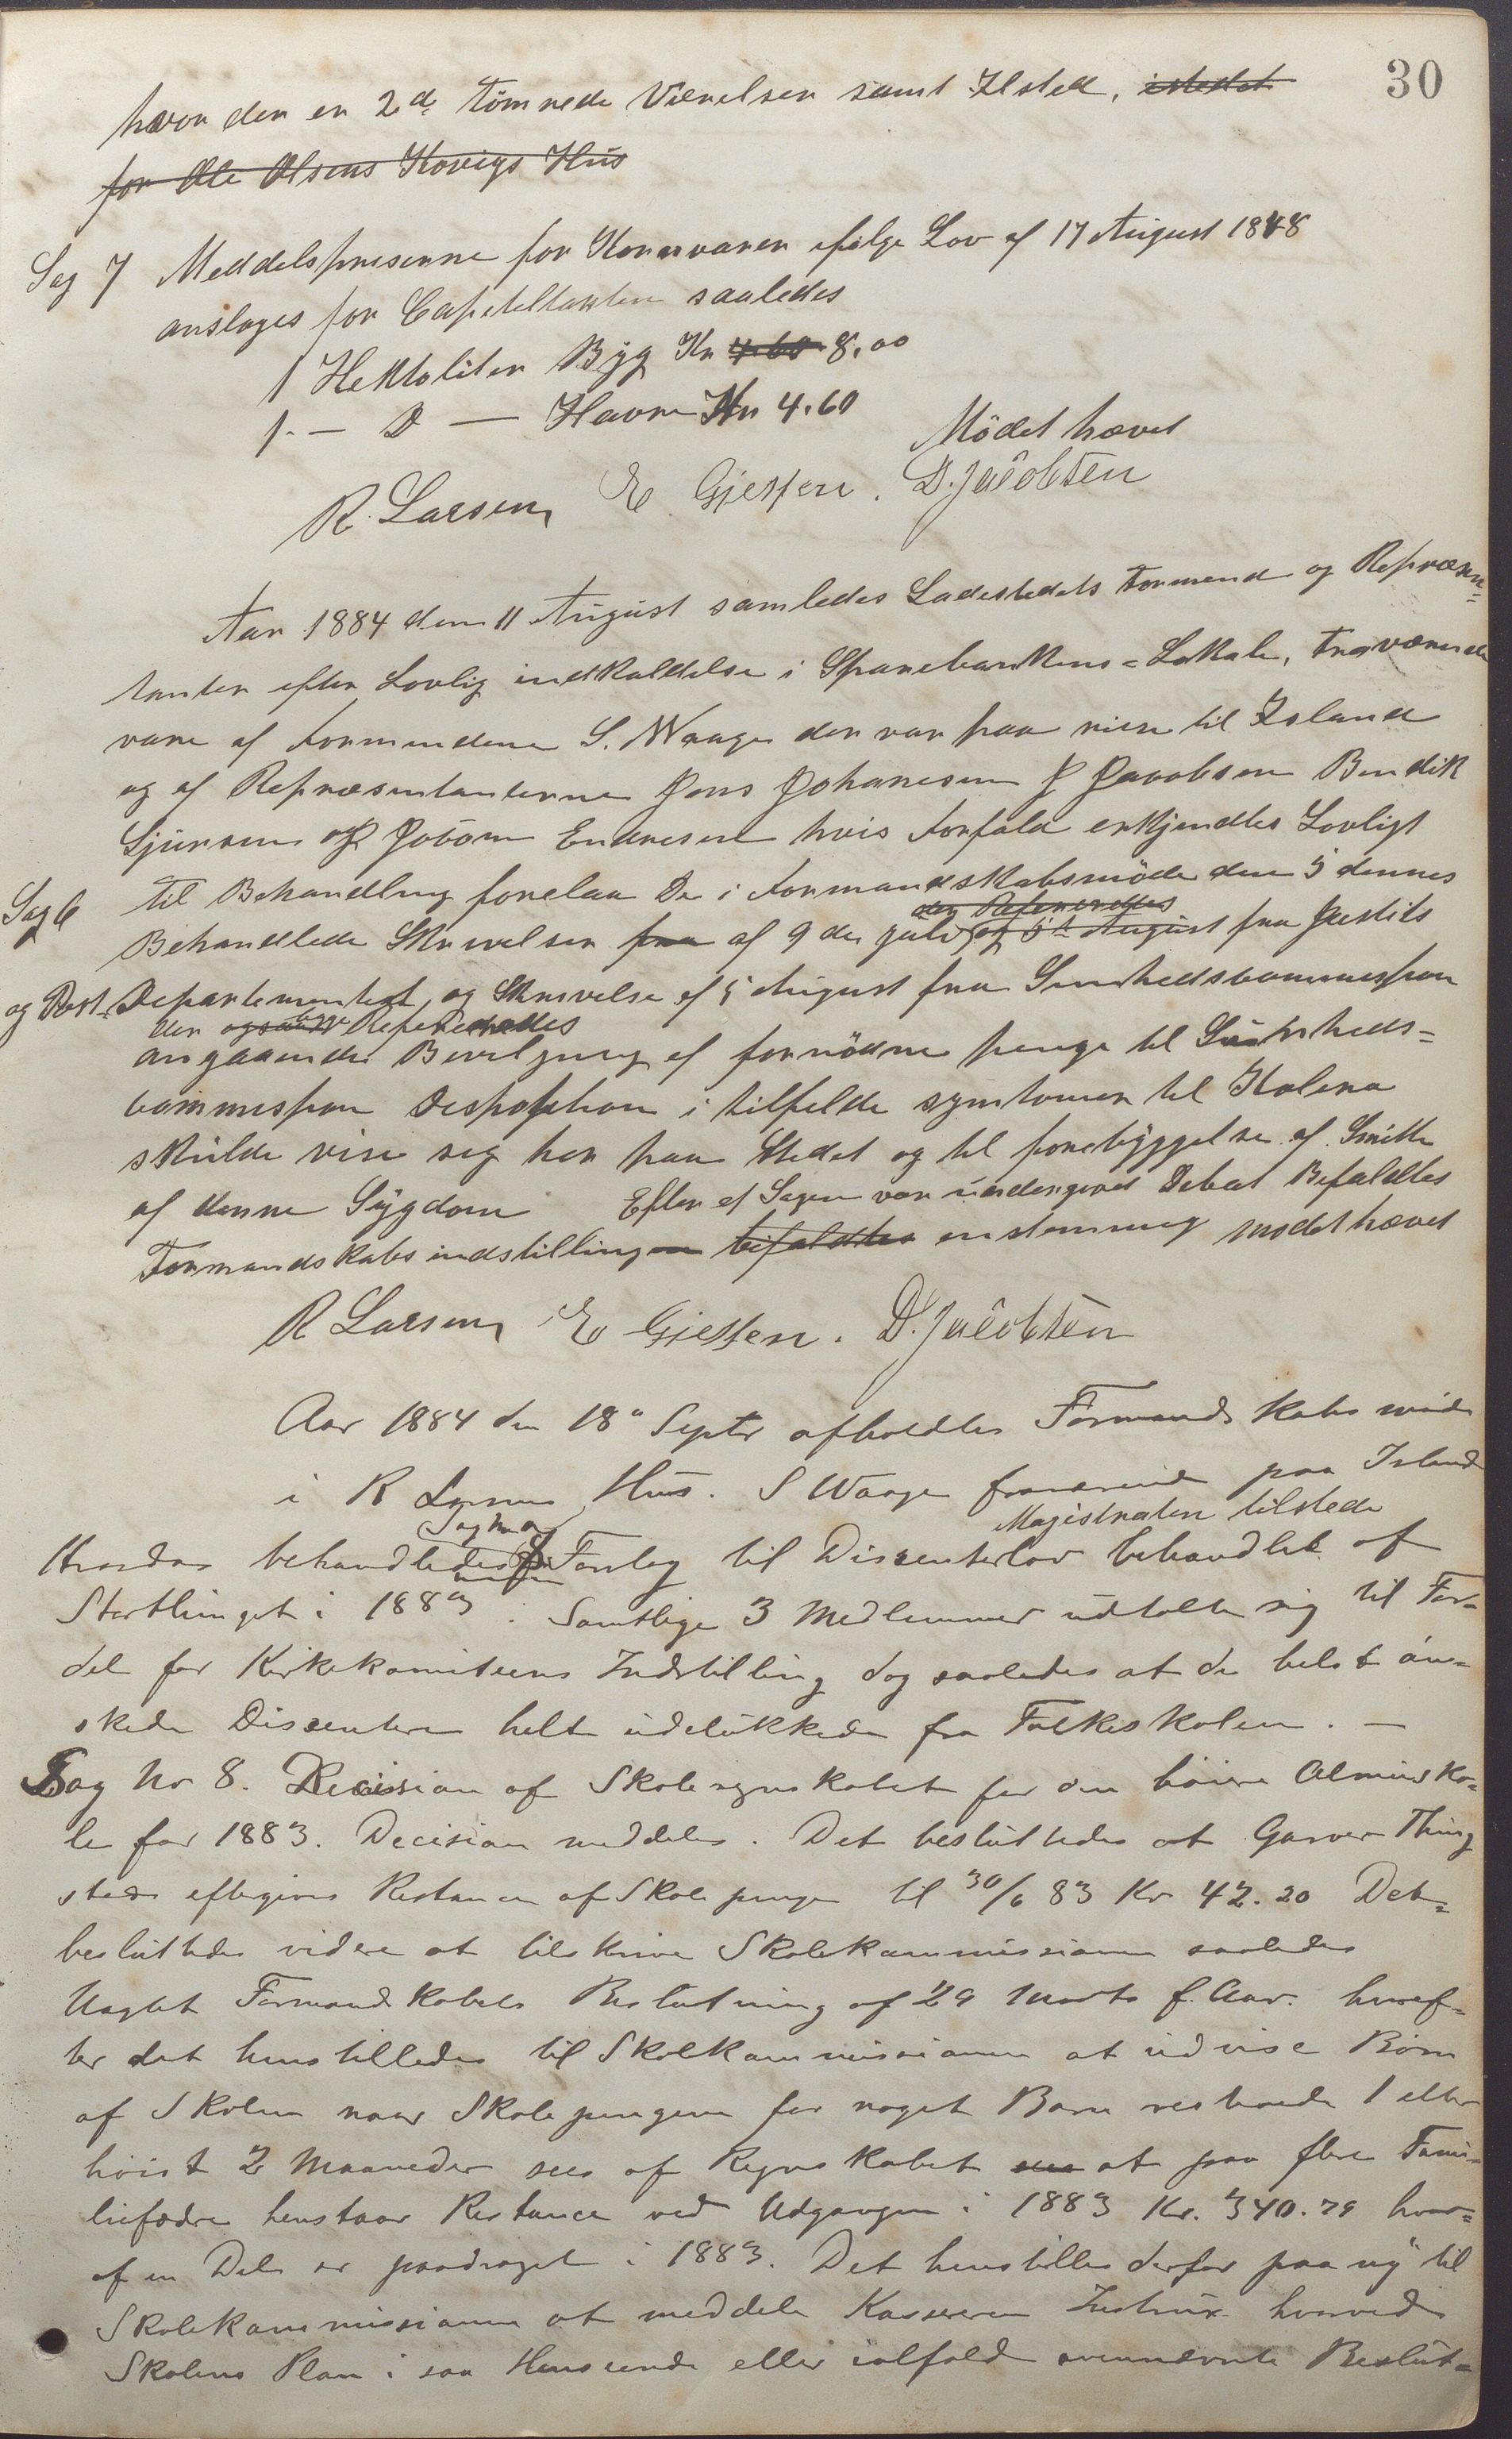 30
hvor der er 2de tömrede Værelser samt Ildsted, istedet
for Ole Olsens Hovigs Hus
Sag 7 Meddelspriserne for Kornvarer ifölge Lov af 17 August 1848
anslages for Capiteltakten saaledes
1 Hektoliter Byg Kr 4.60 8.00
1 — D — Havre Kr 4.60
Mödet hævet
R. Larsen E Gjessen. D. Jacobsen
Aar 1884 den 11 August samledes Ladestedets Formænd og Repræsen=
tanter efter Lovlig indkaldelse i Sparebankens=Lokale, Fraværende
vare af Formendene S. Waage der var paa reise til Island
og af Repræsentanterne Jens Johanesen J Jacobsen Bendik
Sjursen og Endresen hvis Forfald erkjendtes Lovligt
Sag 6 Til Behandling forelaa De i Formandskabsmöde den 5 dennes
der Refereredes
Behandlede Skrivelser fra af 9de juli og 5te August fra Justits
og Post=Departementet, og Skrivelse af 5 August fra Sundhedscommission
der ogsaa Refereredes
angaaende Bevilgning af fornödne penge til Sundheds=
commission Disposition i tilfelde symtomer til Kolera
skulde vise seg her paa Stedet og til forebyggelse af Smitte
af denne Sygdom Efter at Sagen var undergivet Debat Bifaldtes
Formandskabs indstillingen bifaldtes enstemmig mödet hævet
R Larsen E Gjessen. D. Jacobsen
Aar 1884 den 18de Septr afholdtes Formandskabs möde
i R Larsens Hus. S Waage fraværende paa Island
Sag No 9 Magistraten tilstede
Hvordan behandledes Forslag til Dissenterlov behandlet af
Storthinget i 1883. Samtlige 3 Medlemmer udtalte sig til For=
del for Kirkekomiteens Indstilling dog saaledes at de helst øn=
skede Dissentere helt udelukkede fra Folkeskolen. —
Sag No 8. Decision af Skoleregnskabet for den höiere Almuesko=
le for 1883. Decision meddeles. Det besluttedes at Garver Thing
stad eftergives Restance af Skolepenge til 30/6 83 Kr 42.20 Det=
besluttedes videre at tilskrive Skolekommissionen saaledes
Uagtet Formandskabets Beslutning af 29 Marts f. Aar. hvoref=
ter det henstilledes til Skolekommissionen at udvise Börn
af Skolen naar Skolepengene for noget Barn restirede 1 eller
höist 2 Maaneder sees af Regnskabet sees at paa flere Fami=
liefædre henstaar Restance ved Udgangen i 1883 Kr. 340.79 hvor=
af en Del er paadraget i 1883. Det henstilles derfor paa ny til
Skolekommissionen at meddele Kassereren Instrux hvorved
Skolens Plan i saa Henseende eller ialfald ovennævnte Beslut=